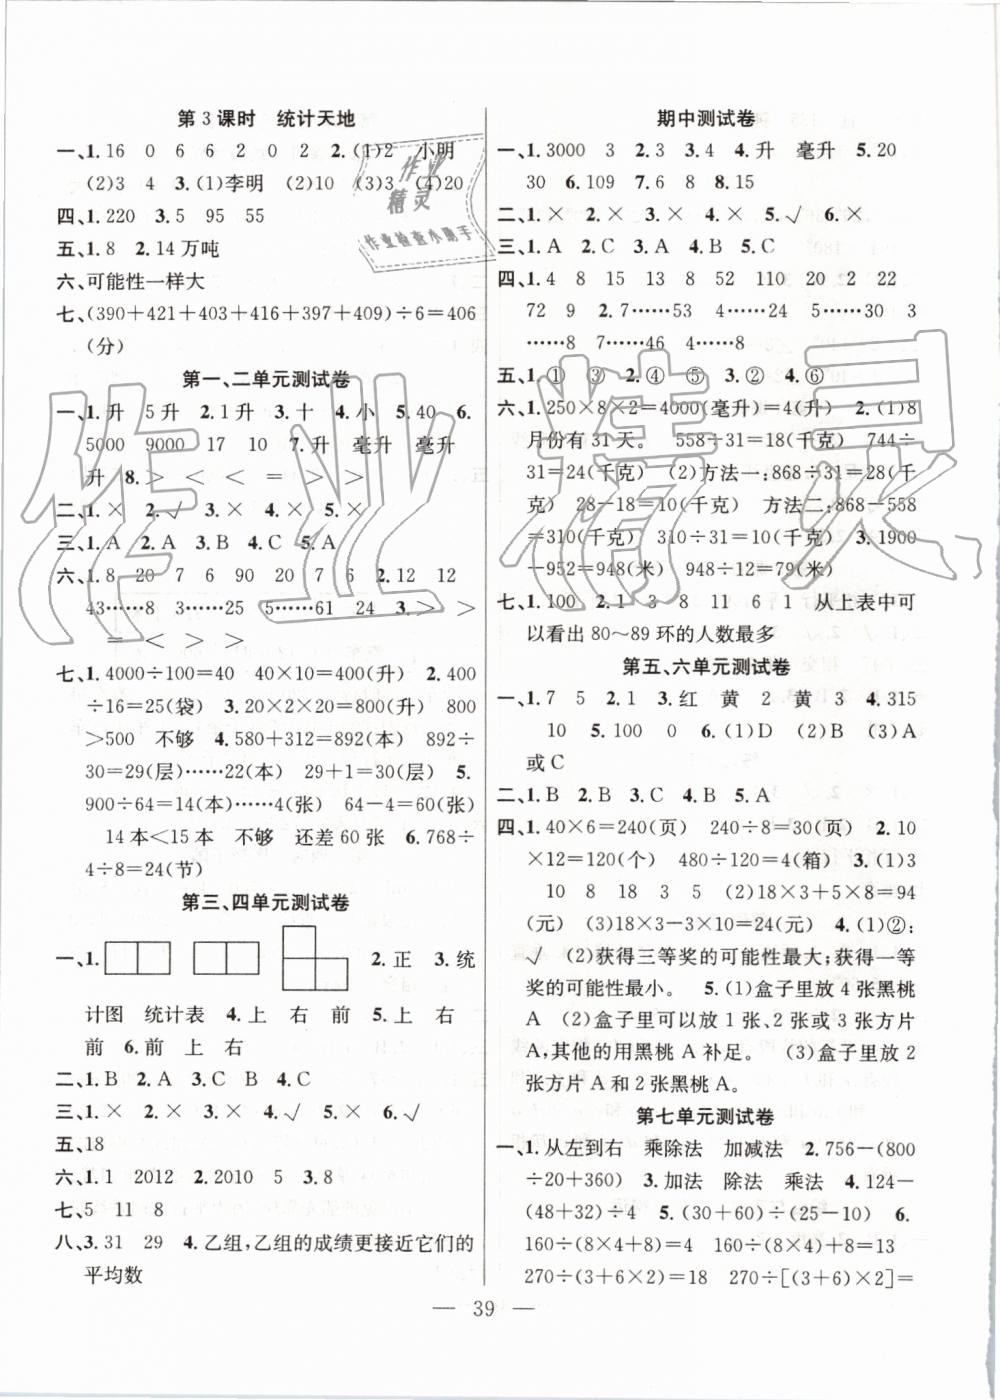 第3课时　统计天地
一、1.16　0　6　6　2　0　2　2.(1)2　小明
(2)3　4　3.(1)李明　(2)10　(3)3　(4)20
四、1.220　3.5　95　55
五、1.8　2.14万吨
六、可能性一样大
七、(390+421+403+416+397+409)÷6=406
(分)
第一、二单元测试卷
一、1.升　5升　2.1升　3.十　4.小　5.40　6.
5000　9000　17　10　7.升　毫升　毫升
升　8.>　<　<　=　>　>
二、1.×　2.√　3.×　4.×　5.×
三、1.A　2.A　3.B　4.C　5.A
六、1.8　20　7　6　90　20　7　6　2.12　12
43……8　3……25　5……61　24　3.>　>
=　<　>　<
七、1.4000÷100=40　40×10=400(升)　2.400
÷16=25(袋)　3.20×2×20=800(升)　800
>500　不够　4.580+312=892(本)　892÷
30=29(层)……22(本)　29+1=30(层)　5.
900÷64=14(本)……4(张)　64-4=60(张)
14本<15本　不够　还差60张　6.768÷
4÷8=24(节)
第三、四单元测试卷
一、1.　2.正　3.统
计图　统计表　4.上　右　前　5.上　右
前　6.前　上　右
二、1.B　2.A　3.C　B　4.C
三、1.×　2.×　3.×　4.√　5.×　6.√
五、18
六、1.1　2012　2.2010　5　3.8
七、5　11　8
八、3.31　29　4.乙组,乙组的成绩更接近它们的
平均数
期中测试卷
一、1.3000　3　2.3　3.4　4.升　毫升　5.20
30　6.109　7.6　8　8.15
二、1.×　2.×　3.×　4.×　5.√　6.×
三、1.A　2.C　3.A　4.B　5.C
四、1.4　8　15　13　8　52　110　20　2　22
72　9　2.7……53　4……5　5……30　3
……8　7……46　4……8
五、1.①　③　2.④　⑤　3.②　4.⑥
六、1.250×8×2=4000(毫升)=4(升)　2.(1)8
月份有31天。　558÷31=18(千克)　744÷
31=24(千克)　(2)方法一:868÷31=28(千
克)　28-18=10(千克)　方法二:868-558
=310(千克)　310÷31=10(千克)　3.1900
-952=948(米)　948÷12=79(米)
七、1.100　2.1　3　8　11　6　1　从上表中可
以看出80～89环的人数最多
第五、六单元测试卷
一、1.7　5　2.1　3.红　黄　2　黄　3　4.315
10　5.100　0　6.(1)D　(2)B　(3)A
或C
二、1.B　2.B　3.C　4.B　5.A
四、1.40×6=240(页)　240÷8=30(页)　2.10
×12=120(个)　480÷120=4(箱)　3.(1)3
10　8　18　3　5　(2)18×3+5×8=94
(元)　(3)18×3-3×10=24(元)　4.(1)②:
√　(2)获得三等奖的可能性最大;获得一等
奖的可能性最小。　5.(1)盒子里放4张黑桃
A　(2)盒子里可以放1张、2张或3张方片
A,其他的用黑桃A补足。　(3)盒子里放2
张方片A和2张黑桃A。
第七单元测试卷
一、1.从左到右　乘除法　加减法　2.756-(800
÷20+360)　3.加法　除法　乘法　4.124-
(48+32)÷5　5.(30+60)÷(25-10)　6.
160÷(8+8)=10　160÷8+8=13
270÷(3+6+6)=18　270÷[(3+6)×2]=
— 39 —
作业精灵
作业
精灵
作业检查小助手